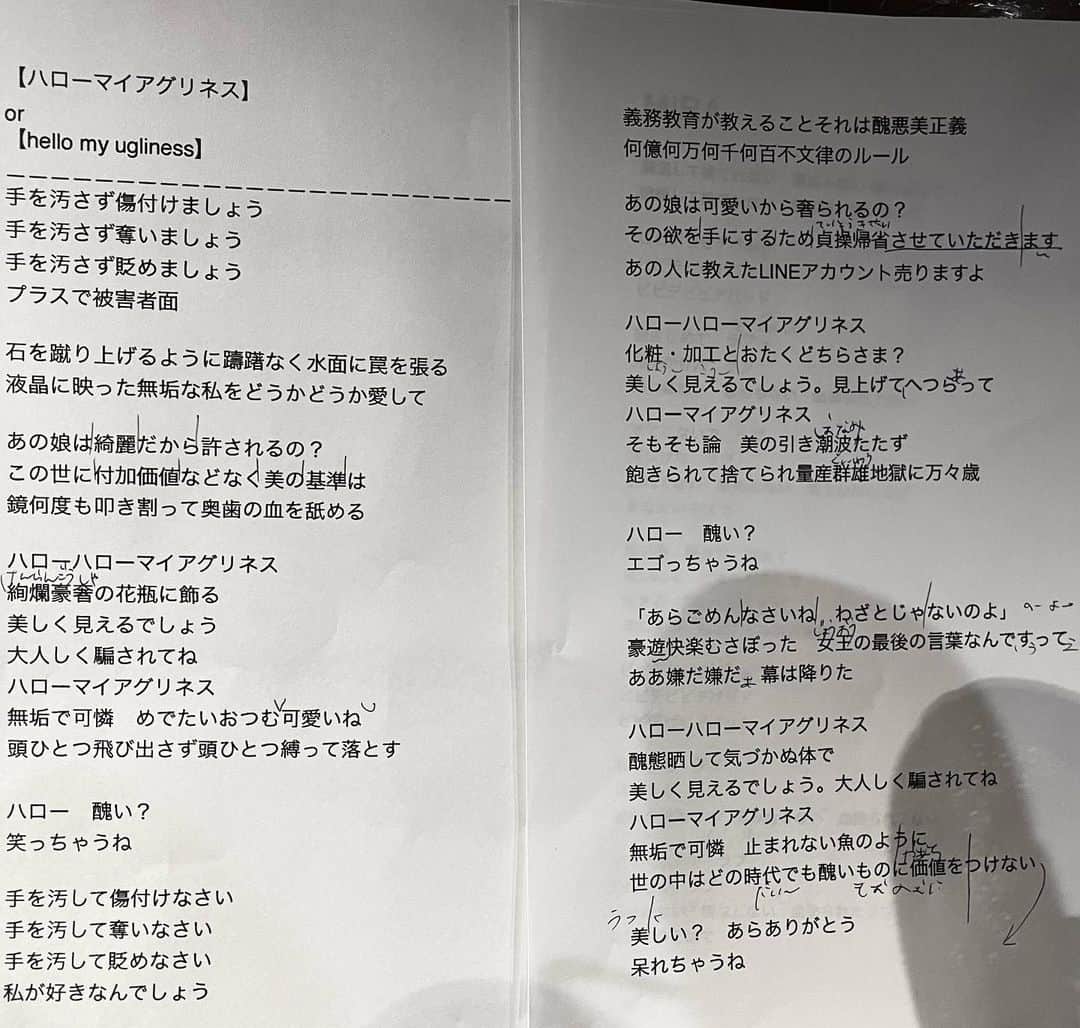 【ハローマイアグリネス】
or
【hello my ugliness】
手を汚さず傷付けましょう
手を汚さず奪いましょう
手を汚さず貶めましょう
プラスで被害者面
石を蹴り上げるように躊躇なく水面に罠を張る
液晶に映った無垢な私をどうかどうか愛して
あの娘は綺麗だから許されるの？
この世に付加価値などなく美の基準は
鏡何度も叩き割って奥歯の血を舐める
ハローハローマイアグリネス
けんらんごうしゃ
絢爛豪奢の花瓶に飾る
美しく見えるでしょう
大人しく騙されてね
ハローマイアグリネス
無垢で可憐　めでたいおつむ可愛いね
頭ひとつ飛び出さず頭ひとつ縛って落とす
ハロー　醜い？
笑っちゃうね
手を汚して傷付けなさい
手を汚して奪いなさい
手を汚して貶めなさい
私が好きなんでしょう
義務教育が教えることそれは醜悪美正義
何億何万何千何百不文律のルール
あの娘は可愛いから奢られるの？
ていそうきせい
その欲を手にするため貞操帰省させていただきます
あの人に教えたLINEアカウント売りますよ
ハローハローマイアグリネス
化粧・加工とおたくどちらさま？
美しく見えるでしょう。見上げてへつらって
ハローマイアグリネス
そもそも論　美の引き潮波たたず
飽きられて捨てられ量産群雄地獄に万々歳
ハロー　醜い？
エゴっちゃうね
「あらごめんなさいね、わざとじゃないのよ」
豪遊快楽むさぼった　女王の最後の言葉なんですって
ああ嫌だ嫌だ　幕は降りた
ハローハローマイアグリネス
醜態晒して気づかぬ体で
美しく見えるでしょう。大人しく騙されてね
ハローマイアグリネス
無垢で可憐　止まれない魚のように
世の中はどの時代でも醜いものに価値をつけない
美しい？　あらありがとう
呆れちゃうね